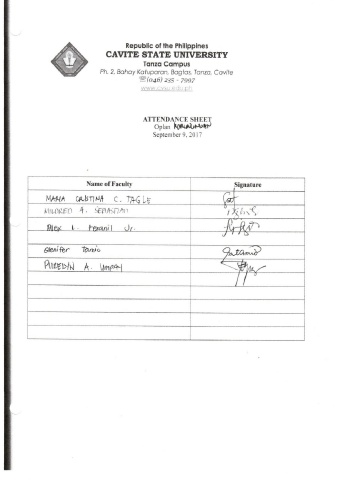 Republic of the Philippines
CAVITE STATE UNIVERSITY
Tanza Campus
Ph. 2, Bahay Katuparan, Bagtas, Tanza, Cavite
☏(046) 235 - 7997
www.cvsu.edu.ph
ATTENDANCE SHEET
Oplan
September 9, 2017
Name of Faculty Signature
MARIA CRISTINA C. TAGLE
MILDRED A. SEBASTIAN
Alex L. Jr.
Grenifer Tamio
A. Umpay